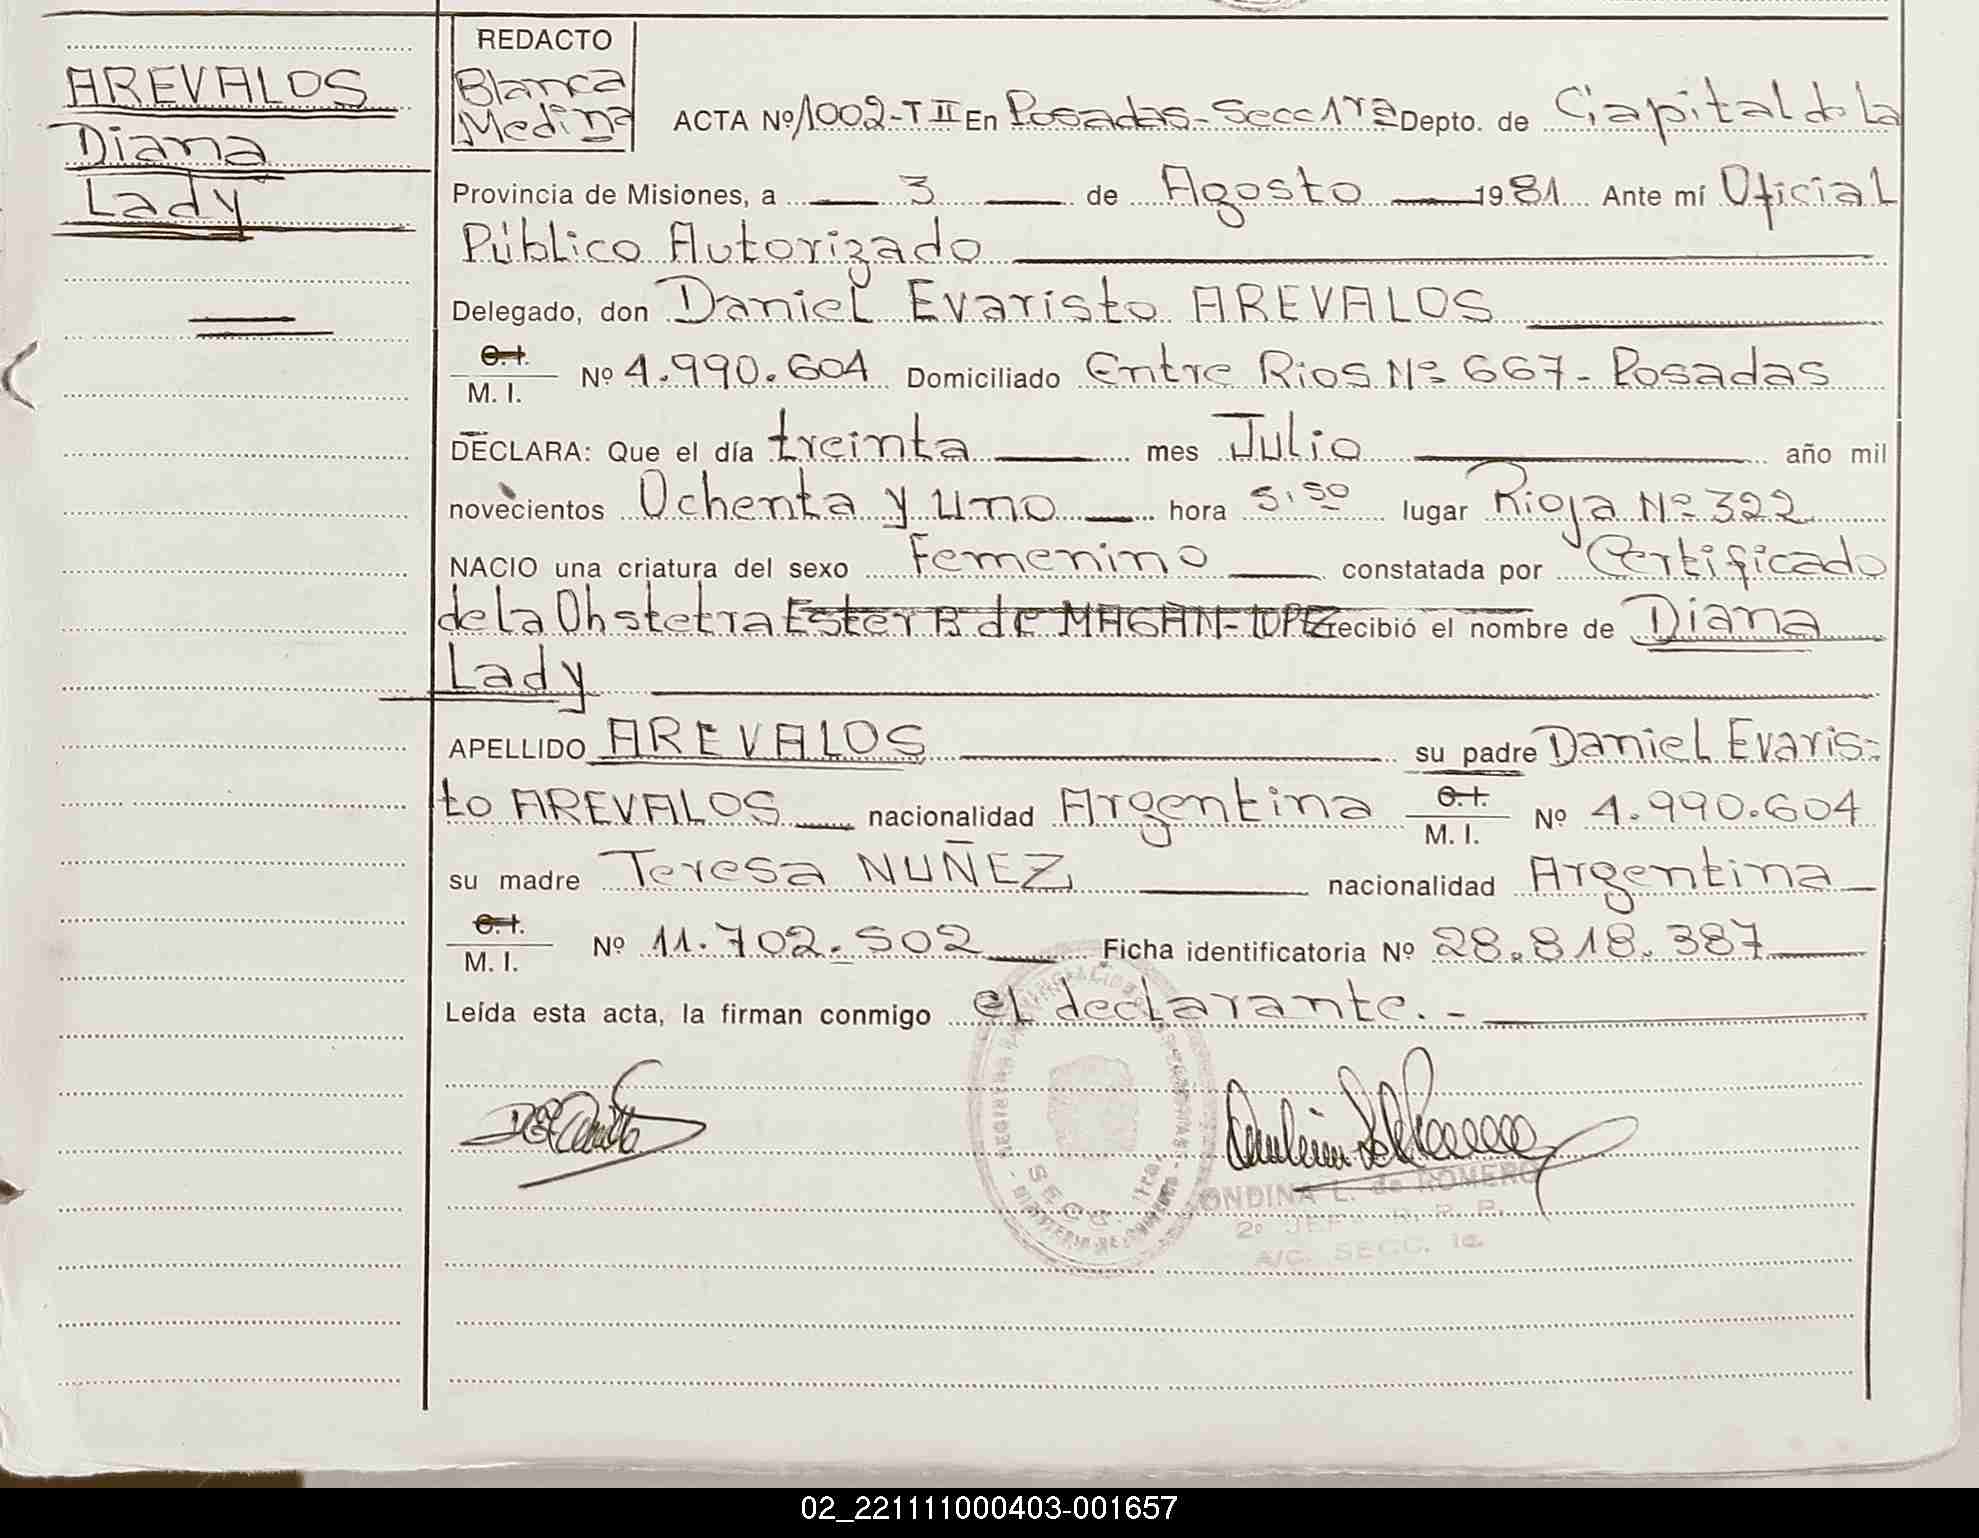 AREVALOS
Diana
Lady
REDACTO
Blanca
Medina
ACTA Nº 1002-T II En Posadas-Secc 1ra Depto. de Capital de la
Provincia de Misiones, a 3 de Agosto 1981 Ante mí Oficial
Público Autorizado
Delegado, don Daniel Evaristo AREVALOS
C.I.
M. I. Nº 4.990.604 Domiciliado Entre Rios Nº 667-Posadas
DECLARA: Que el día treinta mes Julio año mil
novecientos Ochenta y uno hora 5,50 lugar Rioja Nº 322
NACIO una criatura del sexo Femenino constatada por Certificado
de la Obstetra Ester B de MAGAN-LOPEZ recibió el nombre de Diana
Lady
APELLIDO AREVALOS su padre Daniel Evaris-
to AREVALOS nacionalidad Argentina C.I.
M. I. Nº 4.990.604
su madre Teresa NUÑEZ nacionalidad Argentina
C.I.
M. I. Nº 11.702.502 Ficha identificatoria Nº 28.818.387
Leída esta acta, la firman conmigo el declarante.-
SECC. 1ra.
ONDINA L. de ROMERO
2º JEFE R. P. P.
A/C. SECC. 1a
02_221111000403-001657